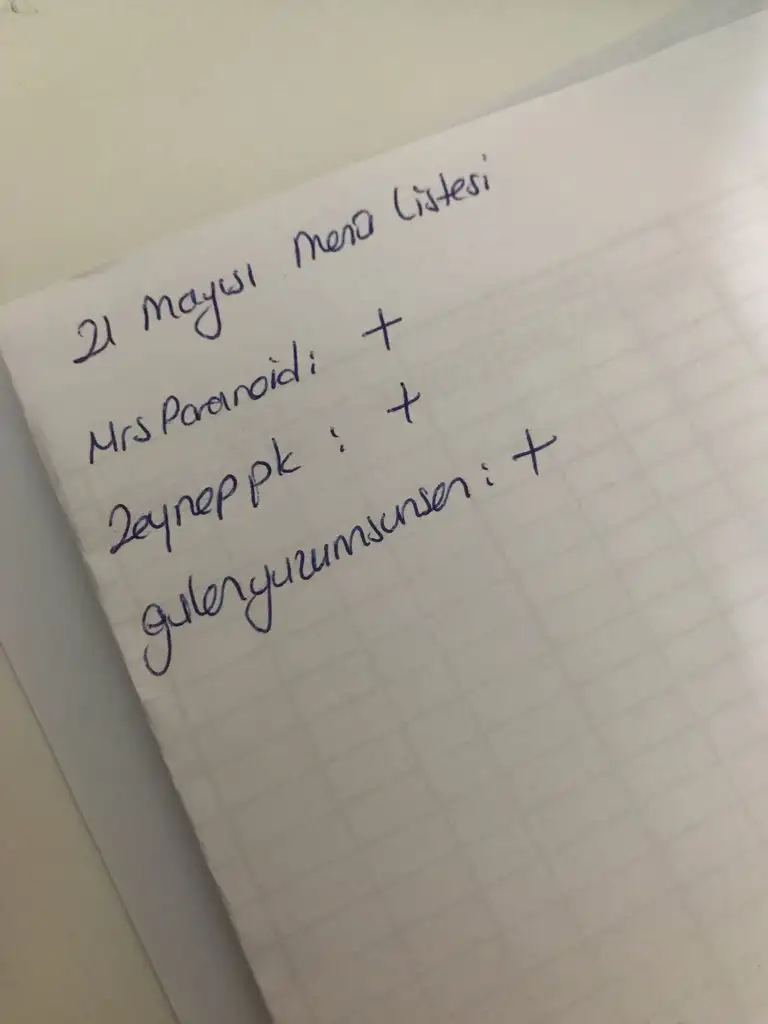 21 Mayısı Menü Listesi
MrsParanoid: +
Zeyneppk : +
gulenyuzumsunsen: +